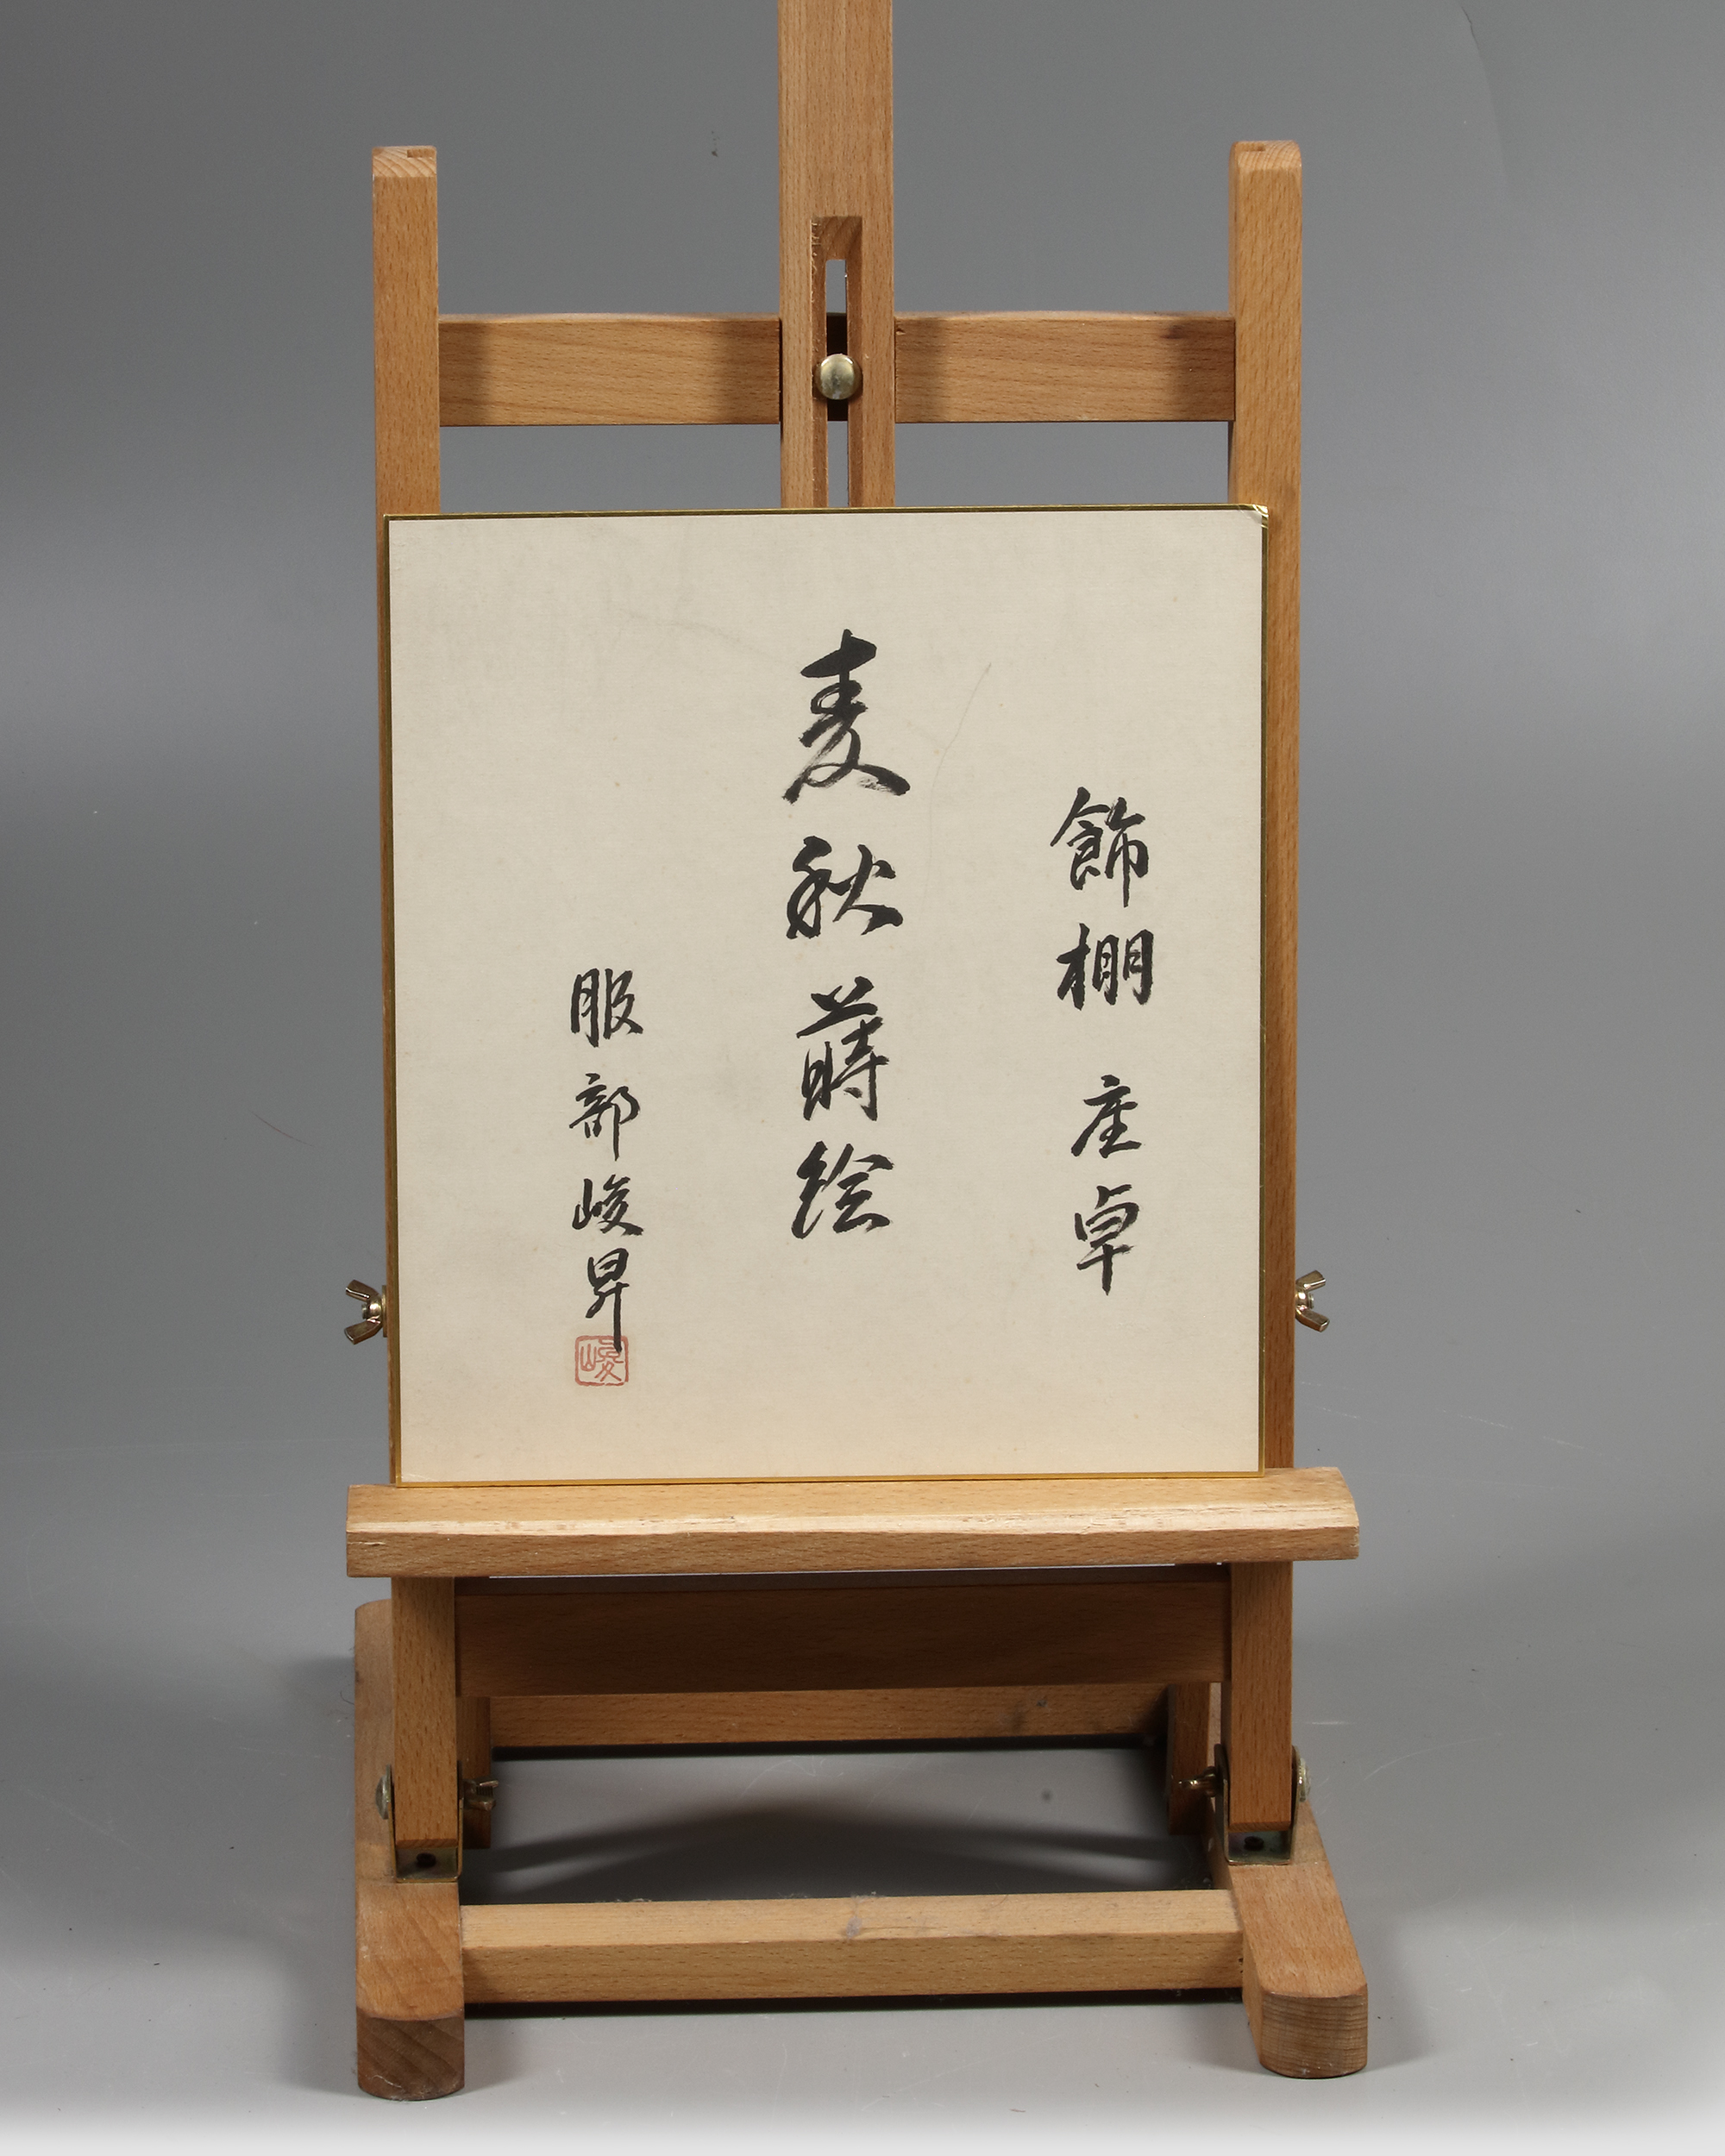 飾棚 座卓
麦秋蒔絵
服部峻昇
峻